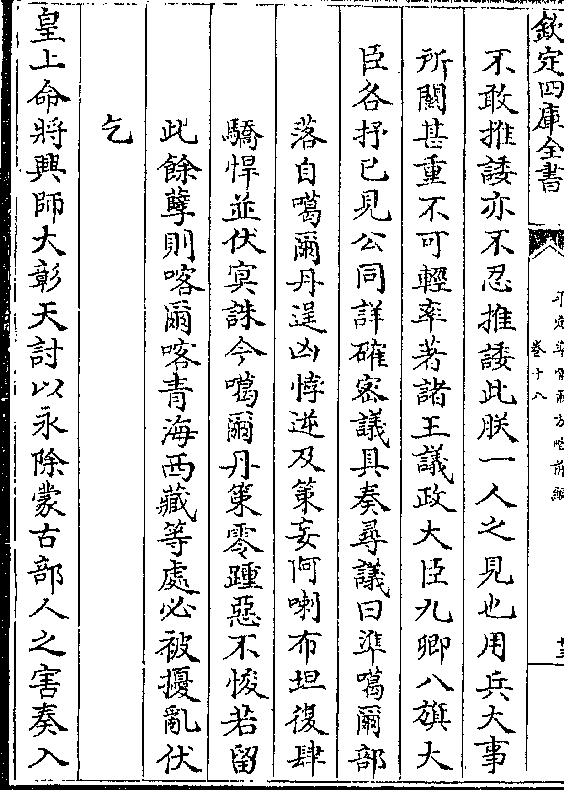 欽定四庫全書
平定準噶爾方略前編
卷十八
不敢推諉亦不忍推諉此朕一人之見也用兵大事
所關甚重不可輕率著諸王議政大臣九卿八旗大
臣各抒己見公同詳確密議具奏尋議曰準噶爾部
落自噶爾丹逞凶悖逆及策妄阿喇布坦復肆
驕悍並伏冥誅今噶爾丹策零踵惡不悛若留
此餘孽則喀爾喀青海西藏等處必被擾亂伏
乞
皇上命將興師大彰天討以永除蒙古部人之害奏入